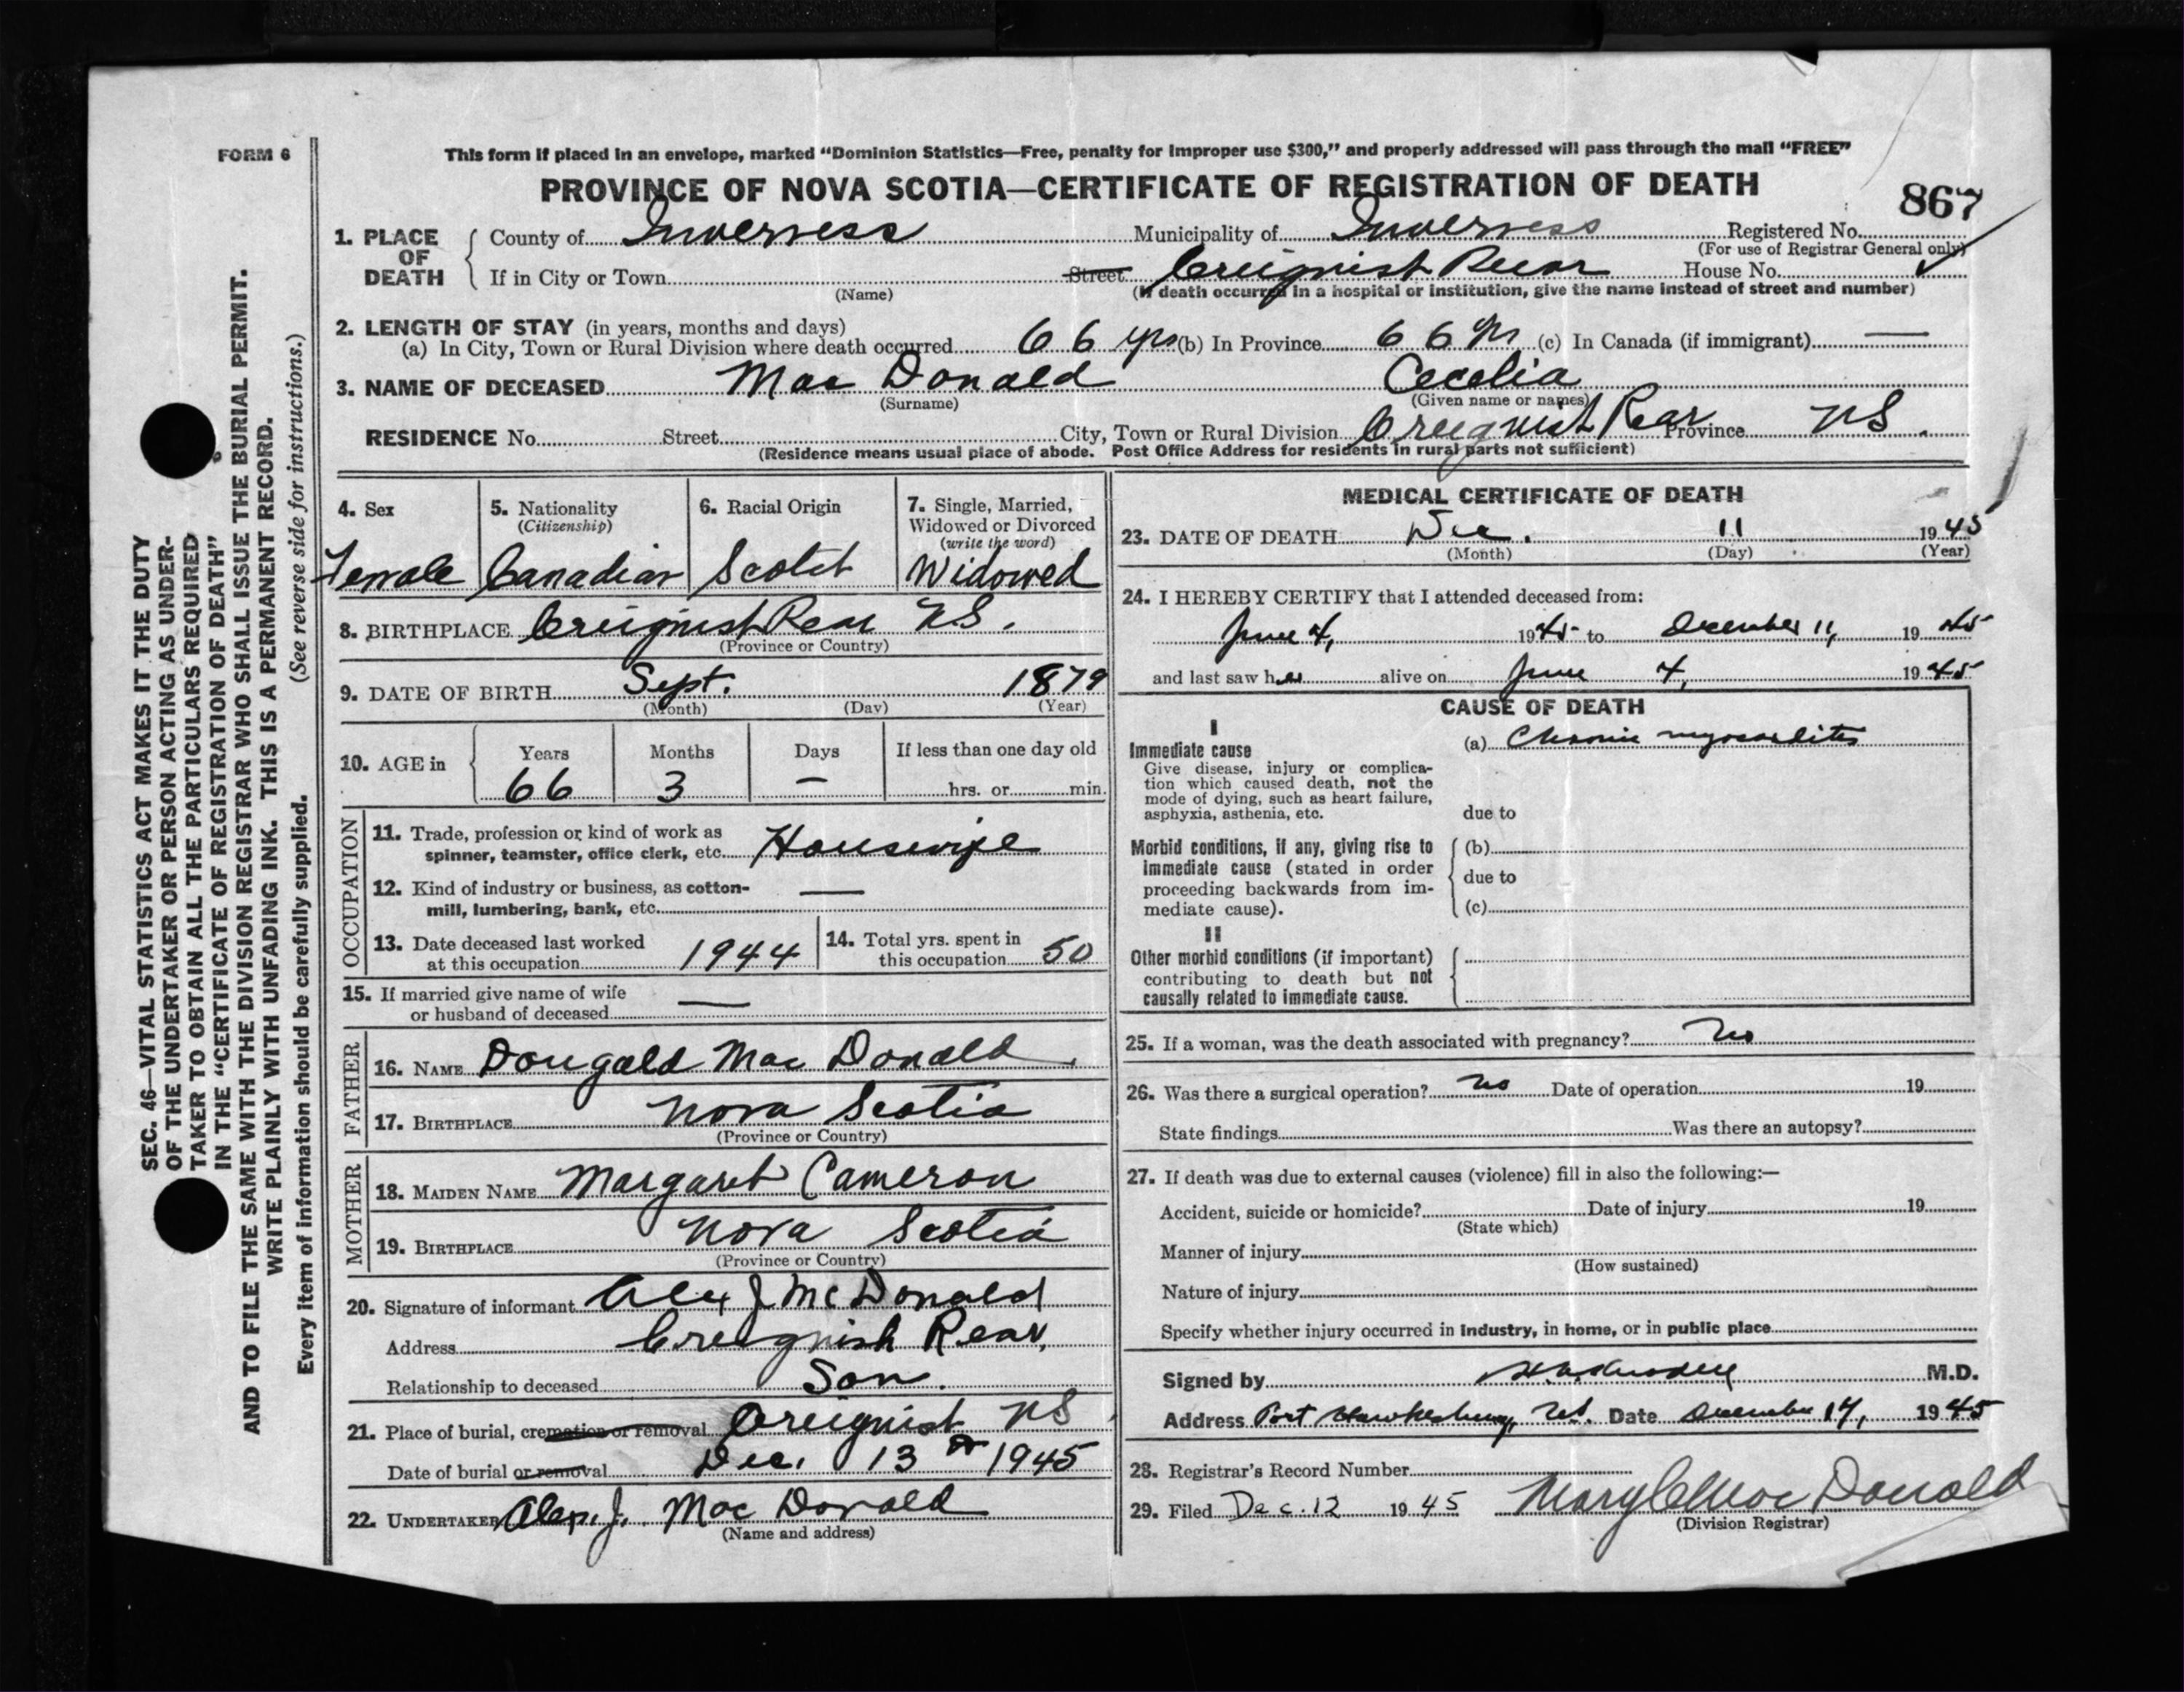 FORM 6
This form if placed in an envelope, marked "Dominion Statistics—Free, penalty for improper use $300," and properly addressed will pass through the mail "FREE"
PROVINCE OF NOVA SCOTIA—CERTIFICATE OF REGISTRATION OF DEATH
867
1. PLACE OF DEATH
County of Inverness Municipality of Inverness Registered No.
(For use of Registrar General only)
If in City or Town Street Creignish Rear House No.
(Name) (If death occurred in a hospital or institution, give the name instead of street and number)
2. LENGTH OF STAY (in years, months and days)
(a) In City, Town or Rural Division where death occurred 66 yrs (b) In Province 66 yrs (c) In Canada (if immigrant) —
3. NAME OF DECEASED Mac Donald Cecelia
(Surname) (Given name or names)
RESIDENCE No. Street City, Town or Rural Division Creignish Rear Province NS.
(Residence means usual place of abode. Post Office Address for residents in rural parts not sufficient)
4. Sex
Female
5. Nationality
(Citizenship)
Canadian
6. Racial Origin
Scotch
7. Single, Married,
Widowed or Divorced
(write the word)
Widowed
8. BIRTHPLACE Creignish Rear NS.
(Province or Country)
9. DATE OF BIRTH Sept. 1879
(Month) (Day) (Year)
10. AGE in Years Months Days If less than one day old
66 3 — hrs. or min.
OCCUPATION
11. Trade, profession or kind of work as
spinner, teamster, office clerk, etc. Housewife
12. Kind of industry or business, as cotton- —
mill, lumbering, bank, etc.
13. Date deceased last worked
at this occupation 1944
14. Total yrs. spent in
this occupation 50
15. If married give name of wife
or husband of deceased —
FATHER
16. NAME Dougald Mac Donald
17. BIRTHPLACE Nova Scotia
(Province or Country)
MOTHER
18. MAIDEN NAME Margaret Cameron
19. BIRTHPLACE Nova Scotia
(Province or Country)
20. Signature of informant Alex J McDonald
Address Creignish Rear,
Relationship to deceased Son.
21. Place of burial, cremation or removal Creignish NS
Date of burial or removal Dec. 13 1945
22. UNDERTAKER Alex. J. Mac Donald
(Name and address)
MEDICAL CERTIFICATE OF DEATH
23. DATE OF DEATH Dec. 11 1945
(Month) (Day) (Year)
24. I HEREBY CERTIFY that I attended deceased from:
June 4, 1945 to December 11, 1945
and last saw her alive on June 4, 1945
CAUSE OF DEATH
I
Immediate cause
Give disease, injury or complica-
tion which caused death, not the
mode of dying, such as heart failure,
asphyxia, asthenia, etc.
(a) Chronic myocarditis
due to
Morbid conditions, if any, giving rise to
immediate cause (stated in order
proceeding backwards from im-
mediate cause).
(b)
due to
(c)
II
Other morbid conditions (if important)
contributing to death but not
causally related to immediate cause.
25. If a woman, was the death associated with pregnancy? No
26. Was there a surgical operation? No Date of operation 19
State findings Was there an autopsy?
27. If death was due to external causes (violence) fill in also the following:—
Accident, suicide or homicide? Date of injury 19
(State which)
Manner of injury
(How sustained)
Nature of injury
Specify whether injury occurred in industry, in home, or in public place
Signed by M.D.
Address Port Hawkesbury, N.S. Date December 14, 1945
28. Registrar's Record Number
29. Filed Dec. 12 1945 Mary C MacDonald
(Division Registrar)
SEC. 46—VITAL STATISTICS ACT MAKES IT THE DUTY
OF THE UNDERTAKER OR PERSON ACTING AS UNDER-
TAKER TO OBTAIN ALL THE PARTICULARS REQUIRED
IN THE "CERTIFICATE OF REGISTRATION OF DEATH"
AND TO FILE THE SAME WITH THE DIVISION REGISTRAR WHO SHALL ISSUE THE BURIAL PERMIT.
WRITE PLAINLY WITH UNFADING INK. THIS IS A PERMANENT RECORD.
Every item of information should be carefully supplied. (See reverse side for instructions.)